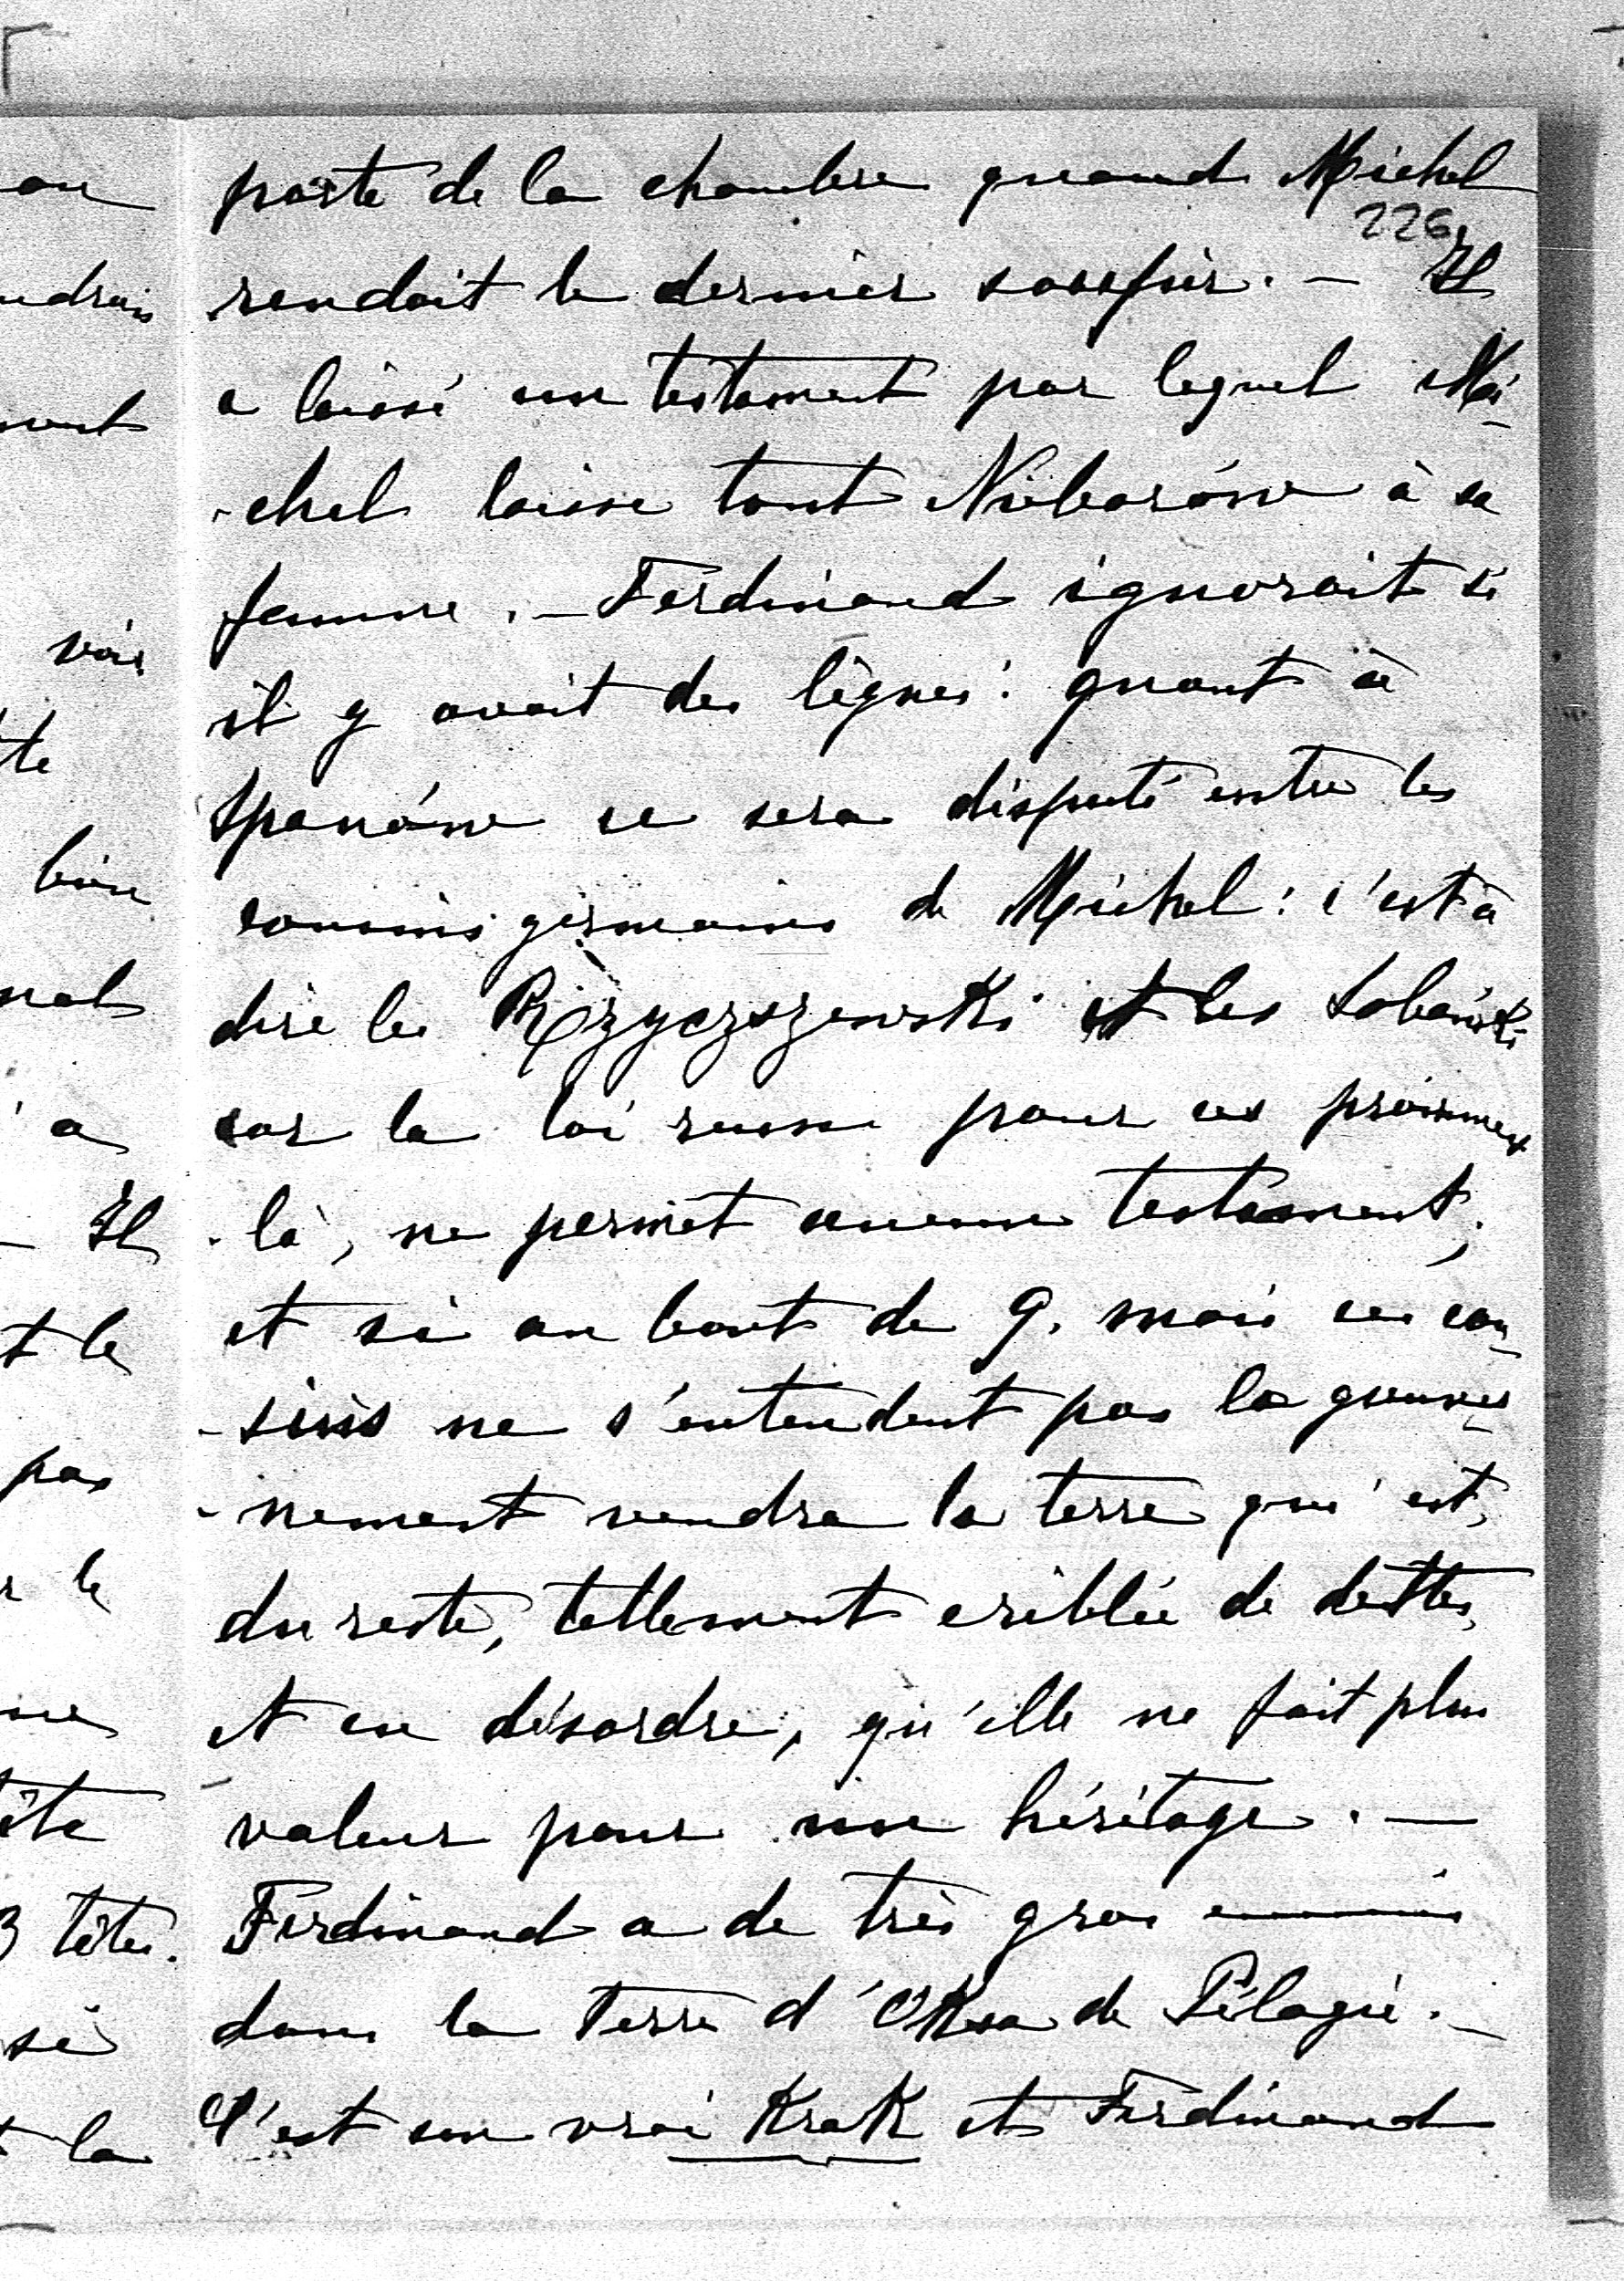 porte de la chambre quand Michel
226
rendait le dernier soupir. — Il
a laissé un testament par lequel Mi-
-chel laisse tout Nieborów à sa
femme. — Ferdinand ignorait si
il y avait des lègues: quant à
Spanów ce sera disputé entre les
cousins germains de Michel: c'est à
dire les Rzyczszewski et les Sobański
car la loi russe pour ces provinces
-là, ne permet aucun testament;
et si au bout de 9. mois ces cou-
-sins ne s'entendent pas le gouver-
-nement vendra la terre qui est,
du reste, tellement criblée de dettes
et en désordre, qu'elle ne fait plus
valeur pour un héritage. —
Ferdinand a de très gros ennuis
dans la terre d'Oksa de Pélagie. —
C'est un vrai Krak et Ferdinand